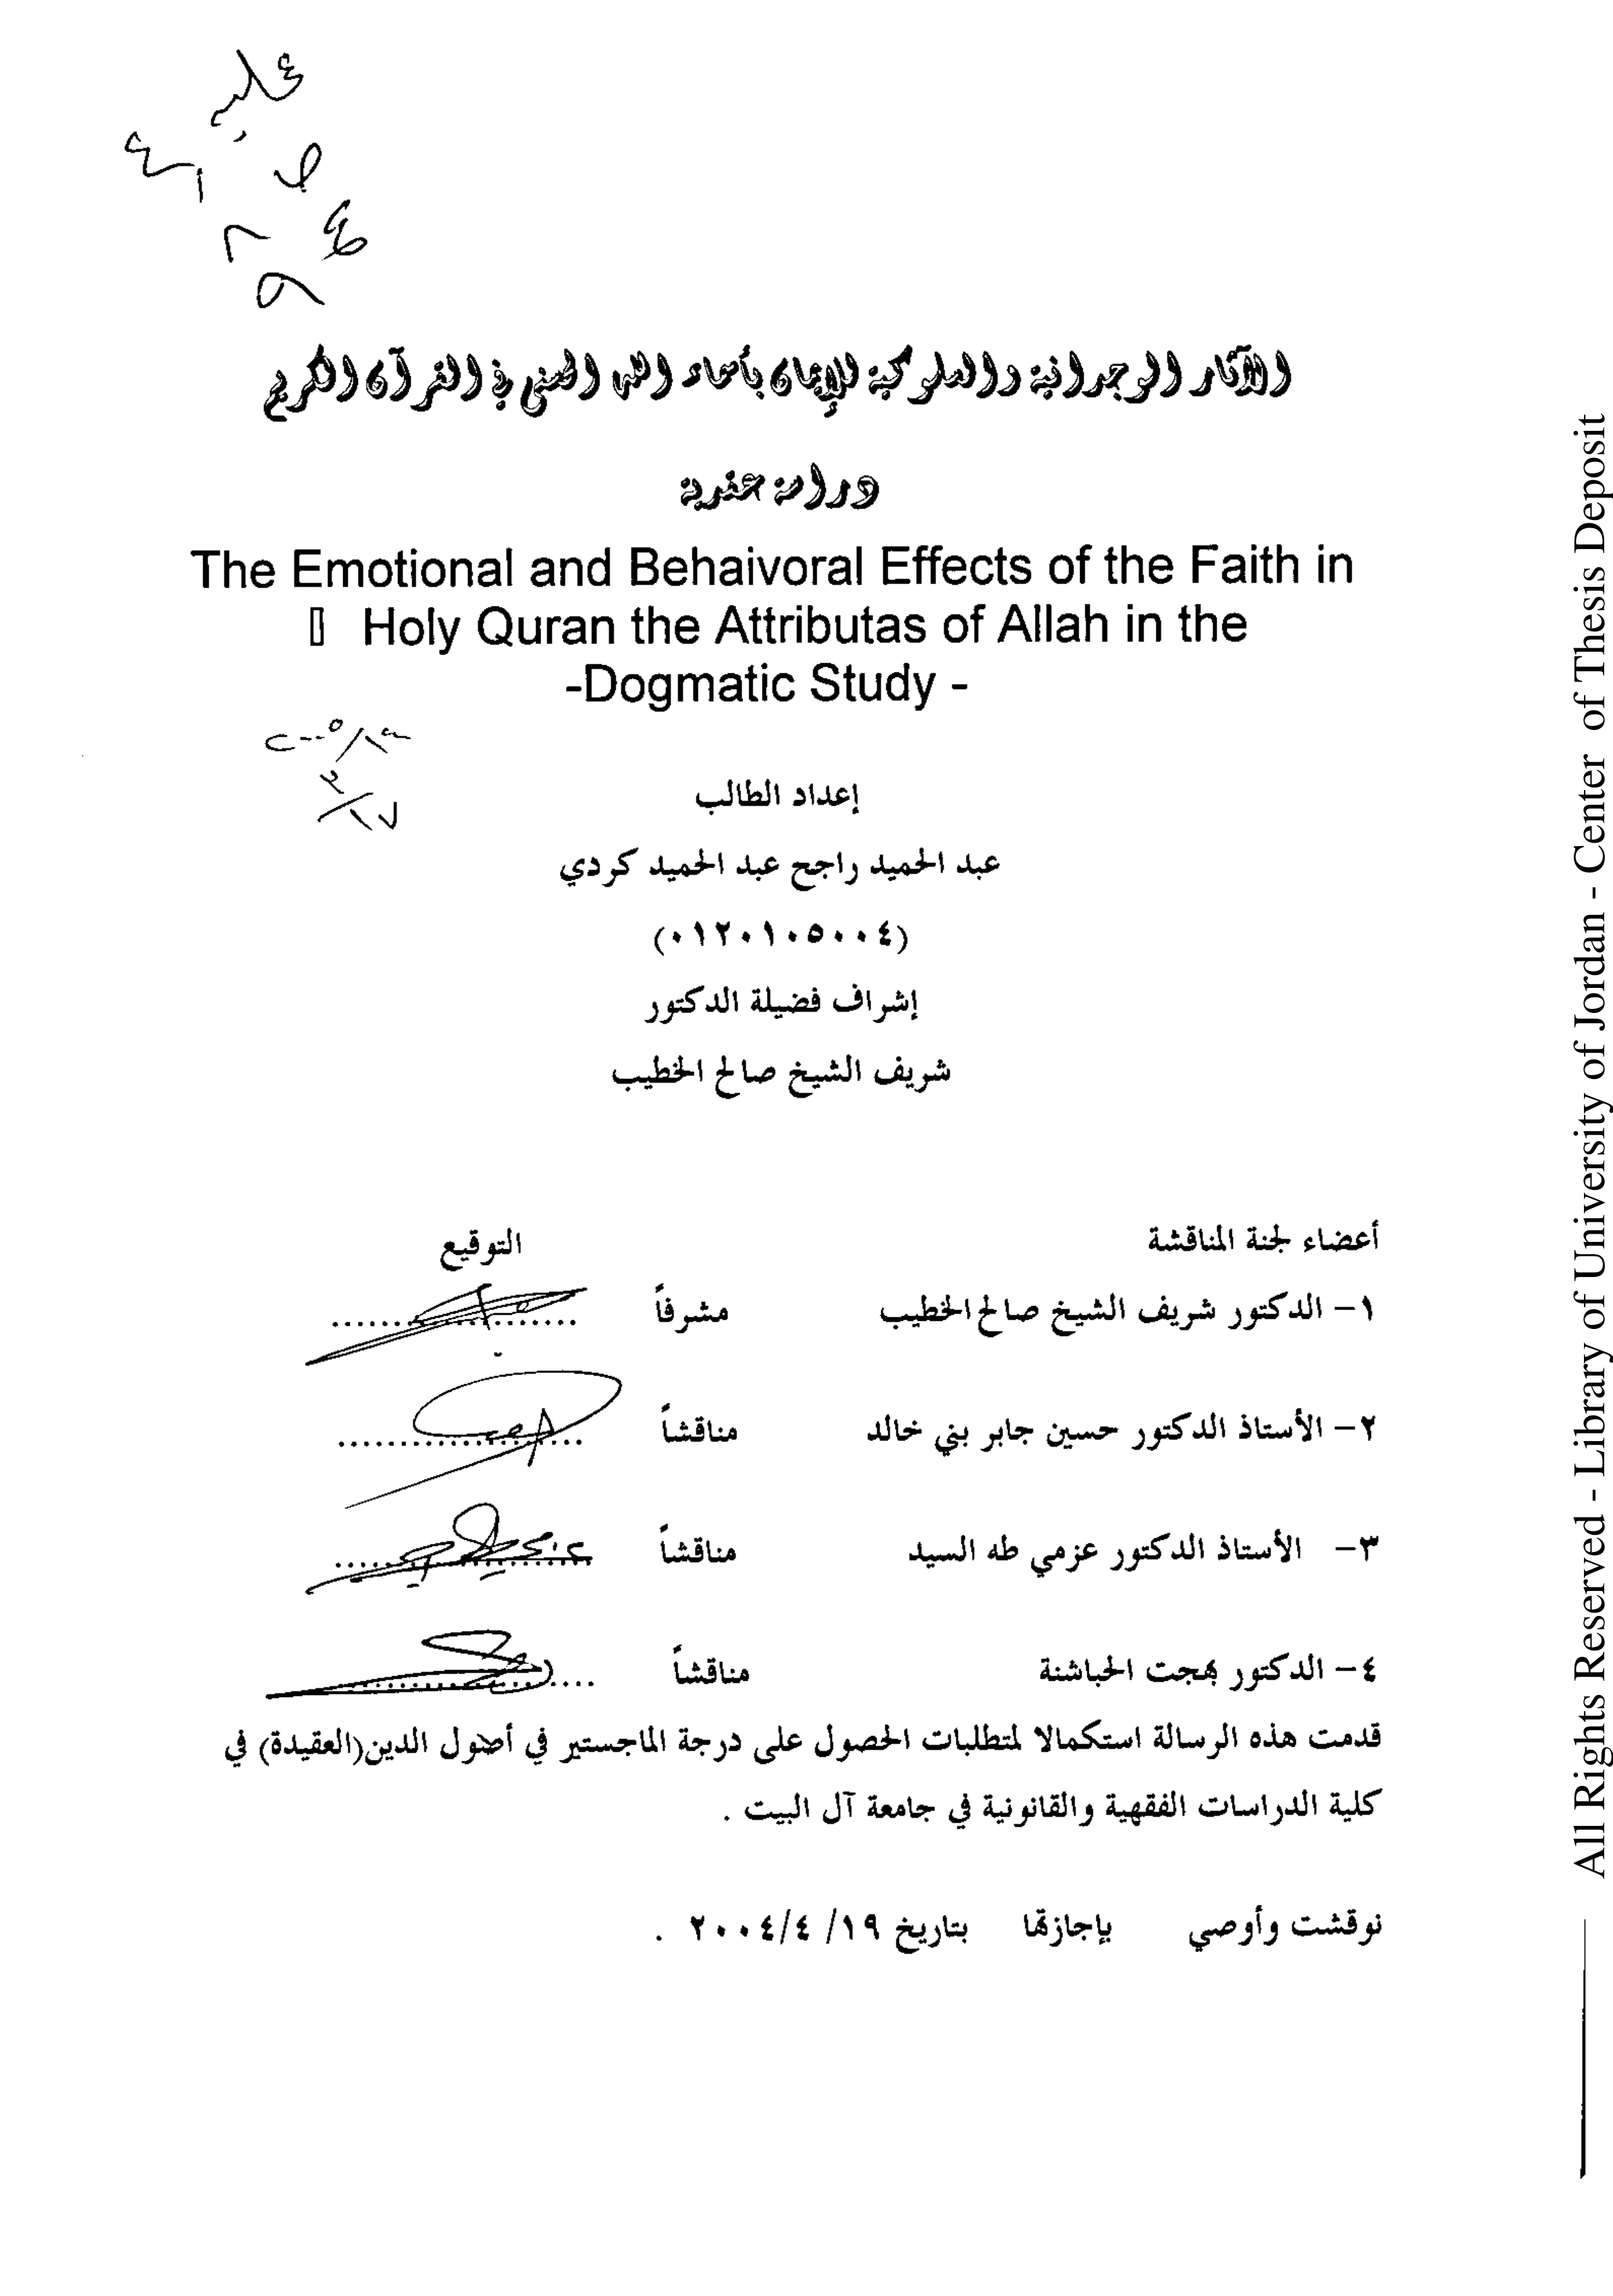 الآثار الوجدانية والسلوكية للإيمان بأسماء الله الحسنى في القرآن الكريم
دراسة عقدية
The Emotional and Behaivoral Effects of the Faith in
Holy Quran the Attributas of Allah in the
-Dogmatic Study -
إعداد الطالب
عبد الحميد راجح عبد الحميد كردي
(٠١٢٠١٠٥٠٠٤)
إشراف فضيلة الدكتور
شريف الشيخ صالح الخطيب
أعضاء لجنة المناقشة التوقيع
١- الدكتور شريف الشيخ صالح الخطيب مشرفاً
٢- الأستاذ الدكتور حسين جابر بني خالد مناقشاً
٣- الأستاذ الدكتور عزمي طه السيد مناقشاً
٤- الدكتور بهجت الحباشنة مناقشاً
قدمت هذه الرسالة استكمالا لمتطلبات الحصول على درجة الماجستير في أصول الدين(العقيدة) في
كلية الدراسات الفقهية والقانونية في جامعة آل البيت .
نوقشت وأوصي بإجازتها بتاريخ ١٩/ ٤/ ٢٠٠٤ .
All Rights Reserved - Library of University of Jordan - Center of Thesis Deposit